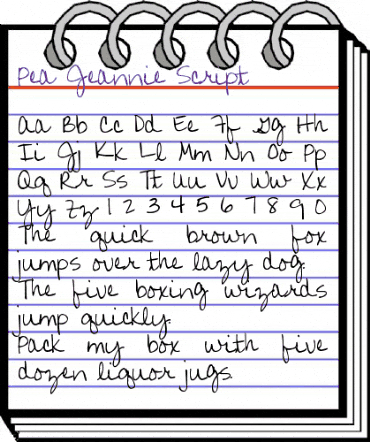 Pea Jeannie Script
Aa Bb Cc Dd Ee Ff Gg Hh
Ii Jj Kk Ll Mm Nn Oo Pp
Qq Rr Ss Tt Uu Vv Ww Xx
Yy Zz 1 2 3 4 5 6 7 8 9 0
The quick brown fox
jumps over the lazy dog.
The five boxing wizards
jump quickly.
Pack my box with five
dozen liquor jugs.